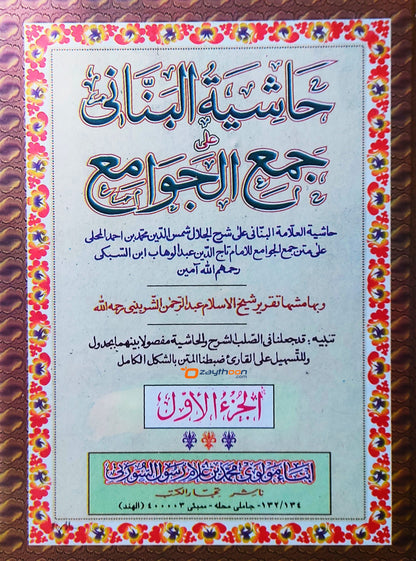 حاشية البنّانى
على
جمع الجوامع
حاشية العلامة البنانى على شرح الجلال شمس الدين محمد بن احمد المحلى
على متن جمع الجوامع للامام تاج الدين عبد الوهاب ابن السبكى
رحمهم الله آمين
وبهامشها تقرير شيخ الاسلام عبد الرحمن الشربينى رحمه الله
تنبيه : قد جعلنا فى الصلب الشرح والحاشية مفصولا بينهما بجدول
وللتسهيل على القارئ ضبطنا المتن بالشكل الكامل
Ozaythoon
.com
الجزء الاول
ابناء مولوى محمد بن غلام رسول السورتى
ناشر تجار الكتب
١٣٢/١٣٤- جاملى محله - ممبئى ٤٠٠٠٠٣ (الهند)